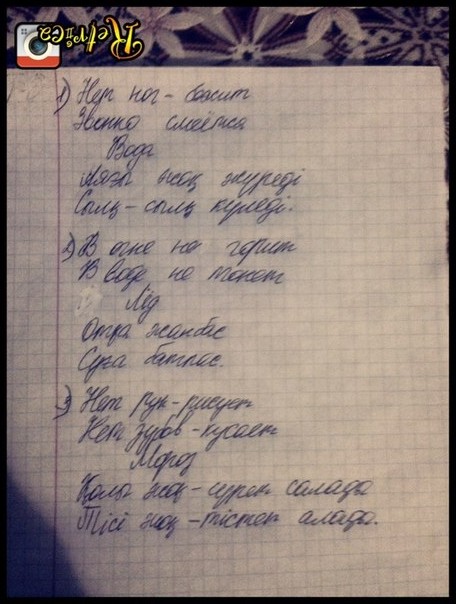 Retrica
1) Нет ног - бежит
Звонко смеётся
Вода
Аяғы жоқ жүреді
Сылқ - сылқ күледі.
2) В огне не горит
В воде не тонет
Лёд
Отқа жанбас
Суға батпас.
3) Нет рук - рисует
Нет зубов - кусает
Мороз
Қолы жоқ - сурет салады
Тісі жоқ - тістеп алады.